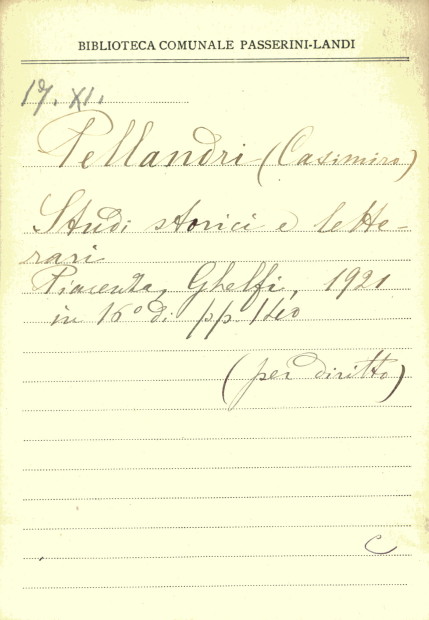 BIBLIOTECA COMUNALE PASSERINI-LANDI
19. XI.
Pellandri (Casimiro)
Studi storici e lette-
rari
Piacenza, Ghelfi, 1921
in 16° di pp. 140
(per diritto)
C